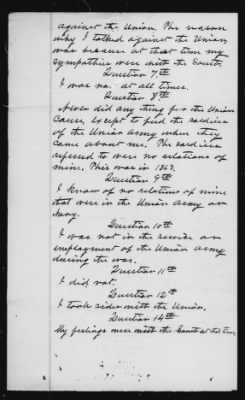 against the Union. The reason
why I talked against the Union
was because at that time my
sympathies were with the South.
Question 7th
I was no. at all times.
Question 8th
Never did any thing for the Union
Cause except to feed the soldiers
of the Union army when they
came about me. The soldiers
referred to were no relations of
mine. This was in 1863.
Question 9th
I know of no relations of mine
that were in the Union army or
Navy.
Question 10th
I was not in the service or
employment of the Union army
during the war.
Question 11th
I did not.
Question 12th
I took sides with the Union.
Question 14th
My feelings were with the South at first